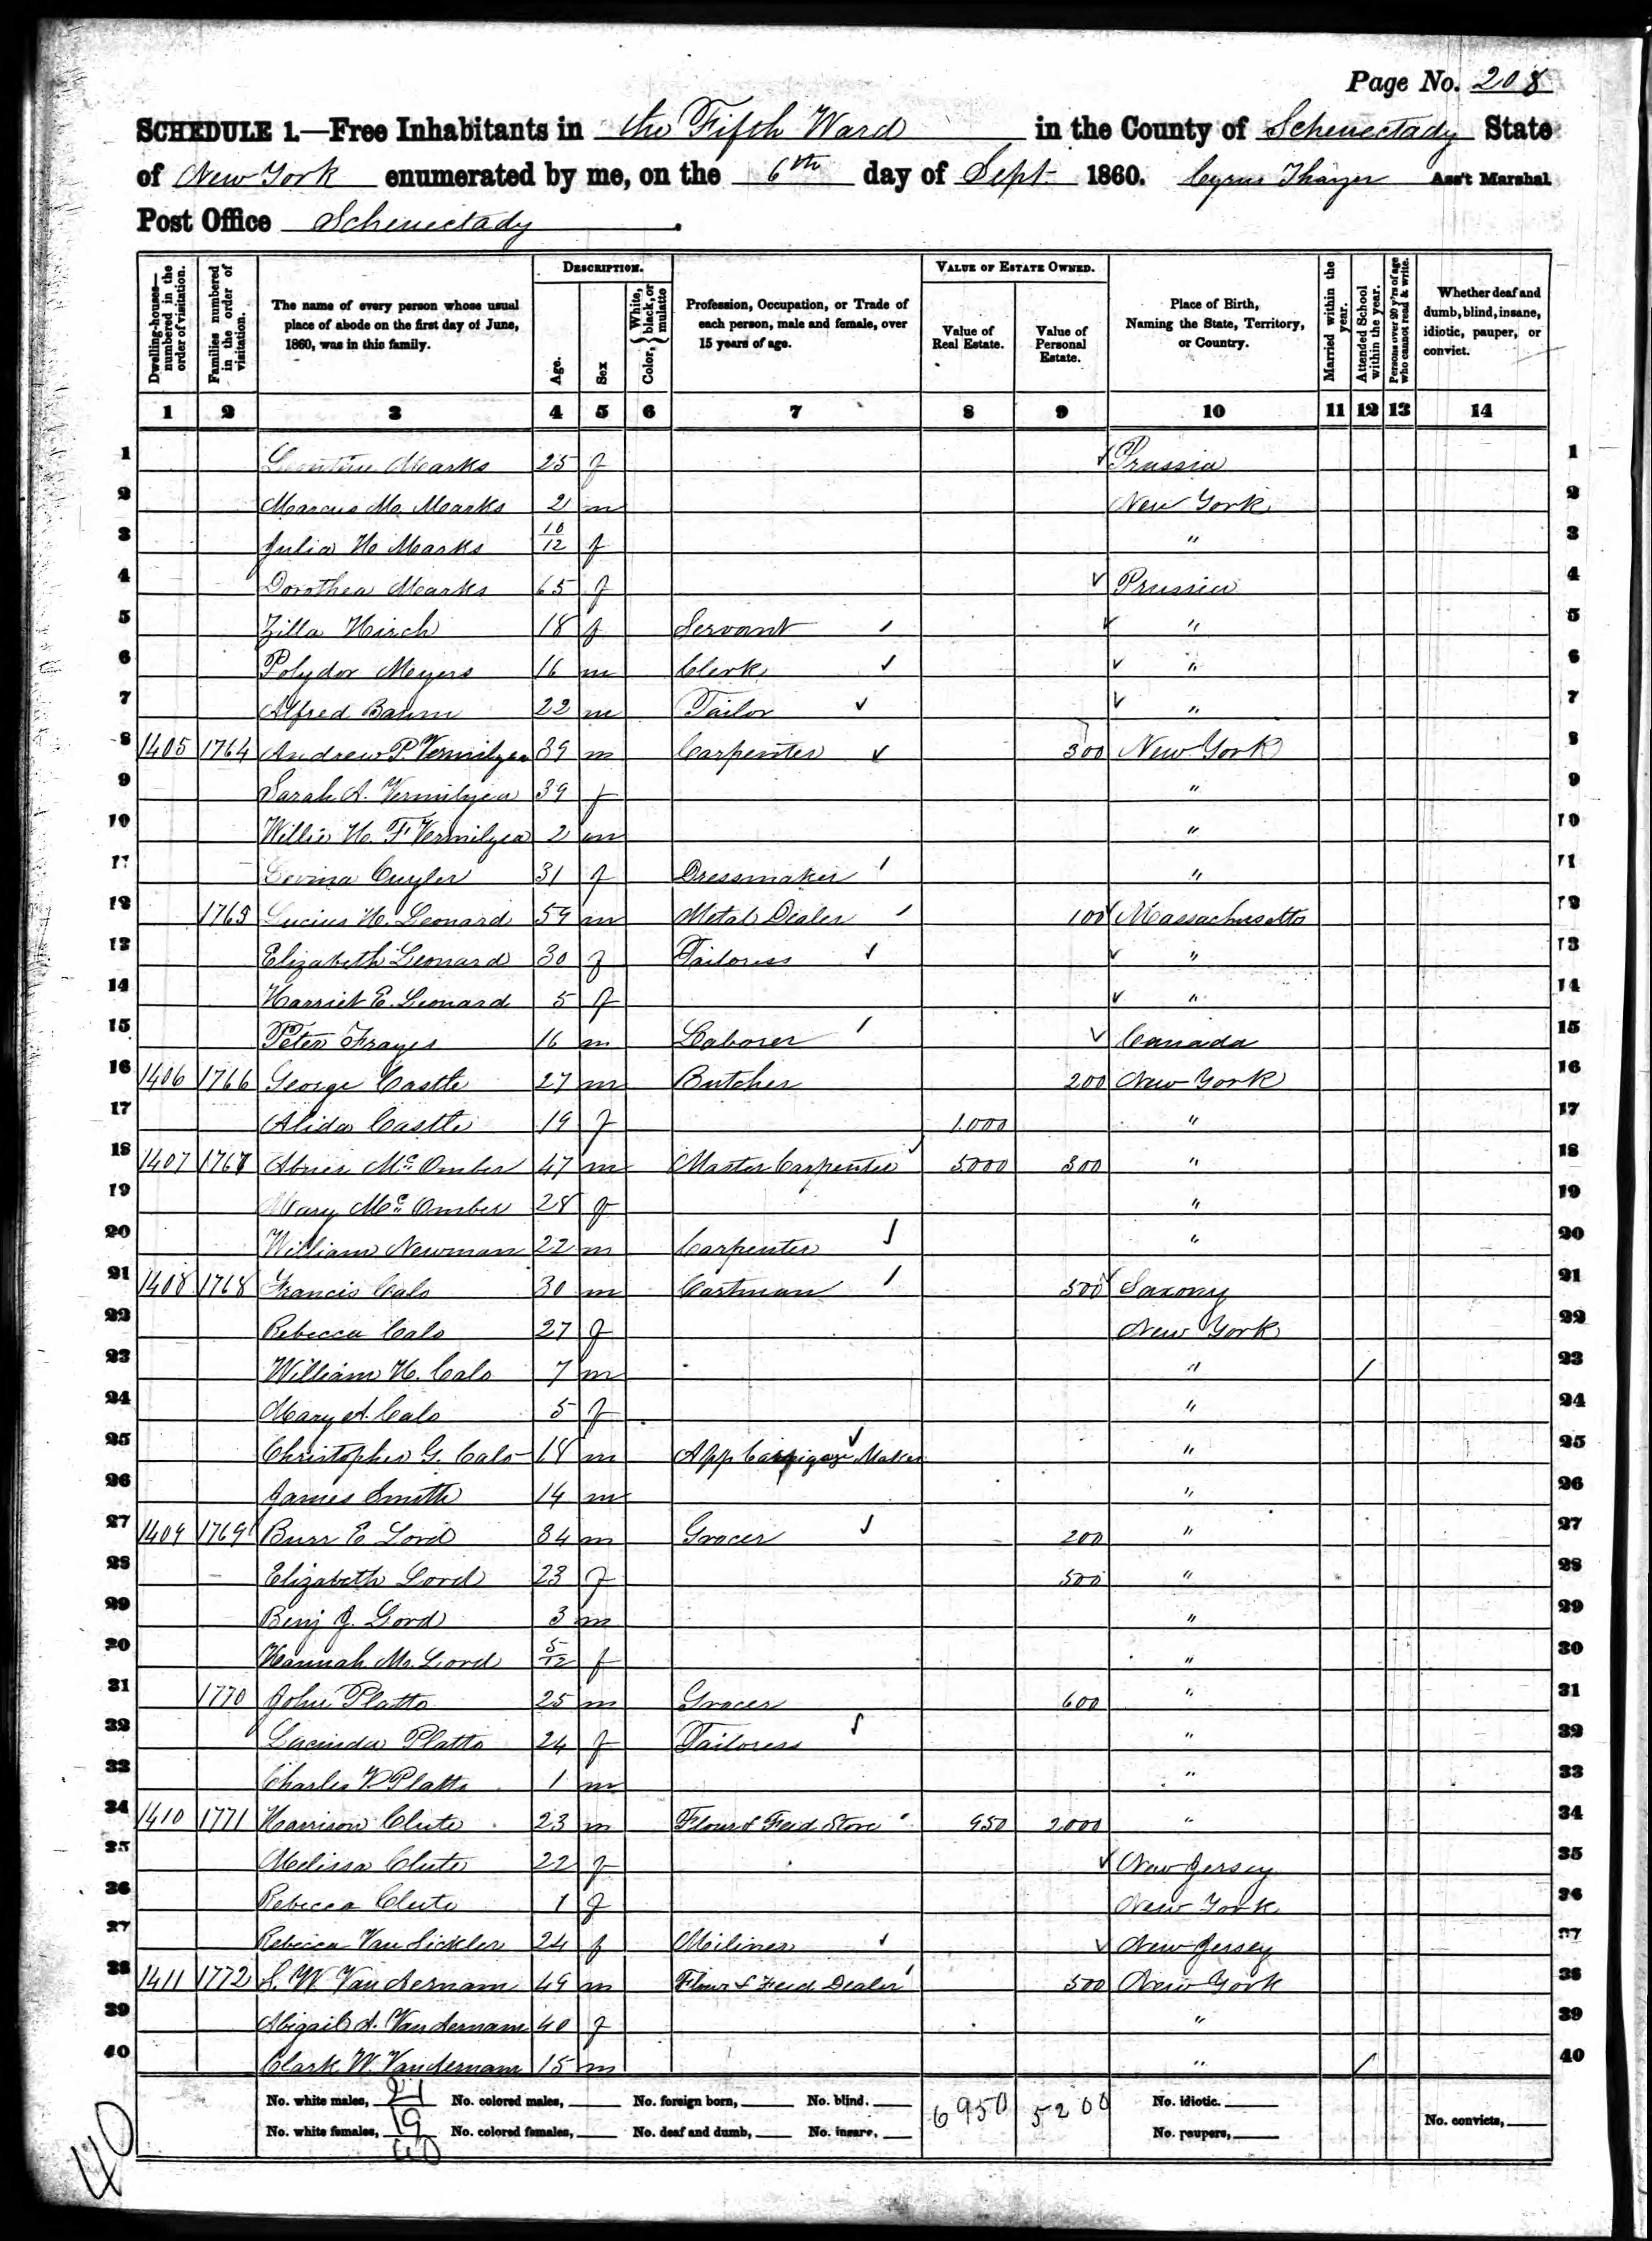 Page No. 208
SCHEDULE 1.—Free Inhabitants in the Fifth Ward in the County of Schenectady State
of New York enumerated by me, on the 6th day of Sept 1860. Cyrus Thayer Ass't Marshal
Post Office Schenectady.
Dwelling-houses—numbered in the order of visitation.
Families numbered in the order of visitation.
The name of every person whose usual place of abode on the first day of June, 1860, was in this family.
DESCRIPTION.
Age.
Sex
Color, { White, black, or mulatto
Profession, Occupation, or Trade of each person, male and female, over 15 years of age.
VALUE OF ESTATE OWNED.
Value of Real Estate.
Value of Personal Estate.
Place of Birth, Naming the State, Territory, or Country.
Married within the year.
Attended School within the year.
Persons over 20 y'rs of age who cannot read & write.
Whether deaf and dumb, blind, insane, idiotic, pauper, or convict.
1 2 3 4 5 6 7 8 9 10 11 12 13 14
1 Marks 25 f Prussia 1
2 Marcus M. Marks 2 m New York 2
3 Julia H. Marks 10/12 f " 3
4 Dorothea Marks 65 f Prussia 4
5 Zilla Hirch 18 f Servant " 5
6 Polydor Meyers 16 m Clerk " 6
7 Alfred Baum 22 m Tailor " 7
8 1405 1764 Andrew P. Vermilyea 39 m Carpenter 300 New York 8
9 Sarah A. Vermilyea 39 f " 9
10 Willie H. F. Vermilyea 2 m " 10
11 Cuyler 31 f Dressmaker " 11
12 1765 Lucius H. Leonard 59 m Metal Dealer 100 Massachusetts 12
13 Elizabeth Leonard 30 f Tailoress " 13
14 Harriet E. Leonard 5 f " 14
15 Peter Frayes 16 m Laborer Canada 15
16 1406 1766 George Castle 27 m Butcher 200 New York 16
17 Alida Castle 19 f 1000 " 17
18 1407 1767 Abner McOmber 47 m Master Carpenter 5000 300 " 18
19 Mary McOmber 28 f " 19
20 William Newman 22 m Carpenter " 20
21 1408 1768 Francis Calo 30 m Cartman 500 Saxony 21
22 Rebecca Calo 27 f New York 22
23 William H. Calo 7 m " / 23
24 Mary A. Calo 5 f " 24
25 Christopher G. Calo 18 m App Carriage Maker " 25
26 James Smith 14 m " 26
27 1409 1769 Burr E Lord 34 m Grocer 200 " 27
28 Elizabeth Lord 23 f 500 " 28
29 Benj J. Lord 3 m " 29
30 Hannah M. Lord 5/12 f " 30
31 1770 John Platto 25 m Grocer 600 " 31
32 Lucinda Platto 24 f Tailoress " 32
33 Charles V. Platto 1 m " 33
34 1410 1771 Harrison Clute 23 m Flour & Feed Store 950 2000 " 34
35 Melissa Clute 22 f New Jersey 35
36 Rebecca Clute 1 f New York 36
37 Rebecca Van Sickler 24 f Miliner New Jersey 37
38 1411 1772 S. W. Vandernam 49 m Flour & Feed Dealer 500 New York 38
39 Abigail A. Vandernam 40 f " 39
40 Clark W. Vandernam 15 m " / 40
No. white males, 21 No. colored males, No. foreign born, No. blind. 6950 5200 No. idiotic.
No. white females, 19 No. colored females, No. deaf and dumb, No. insane, No. paupers, No. convicts,
40
40